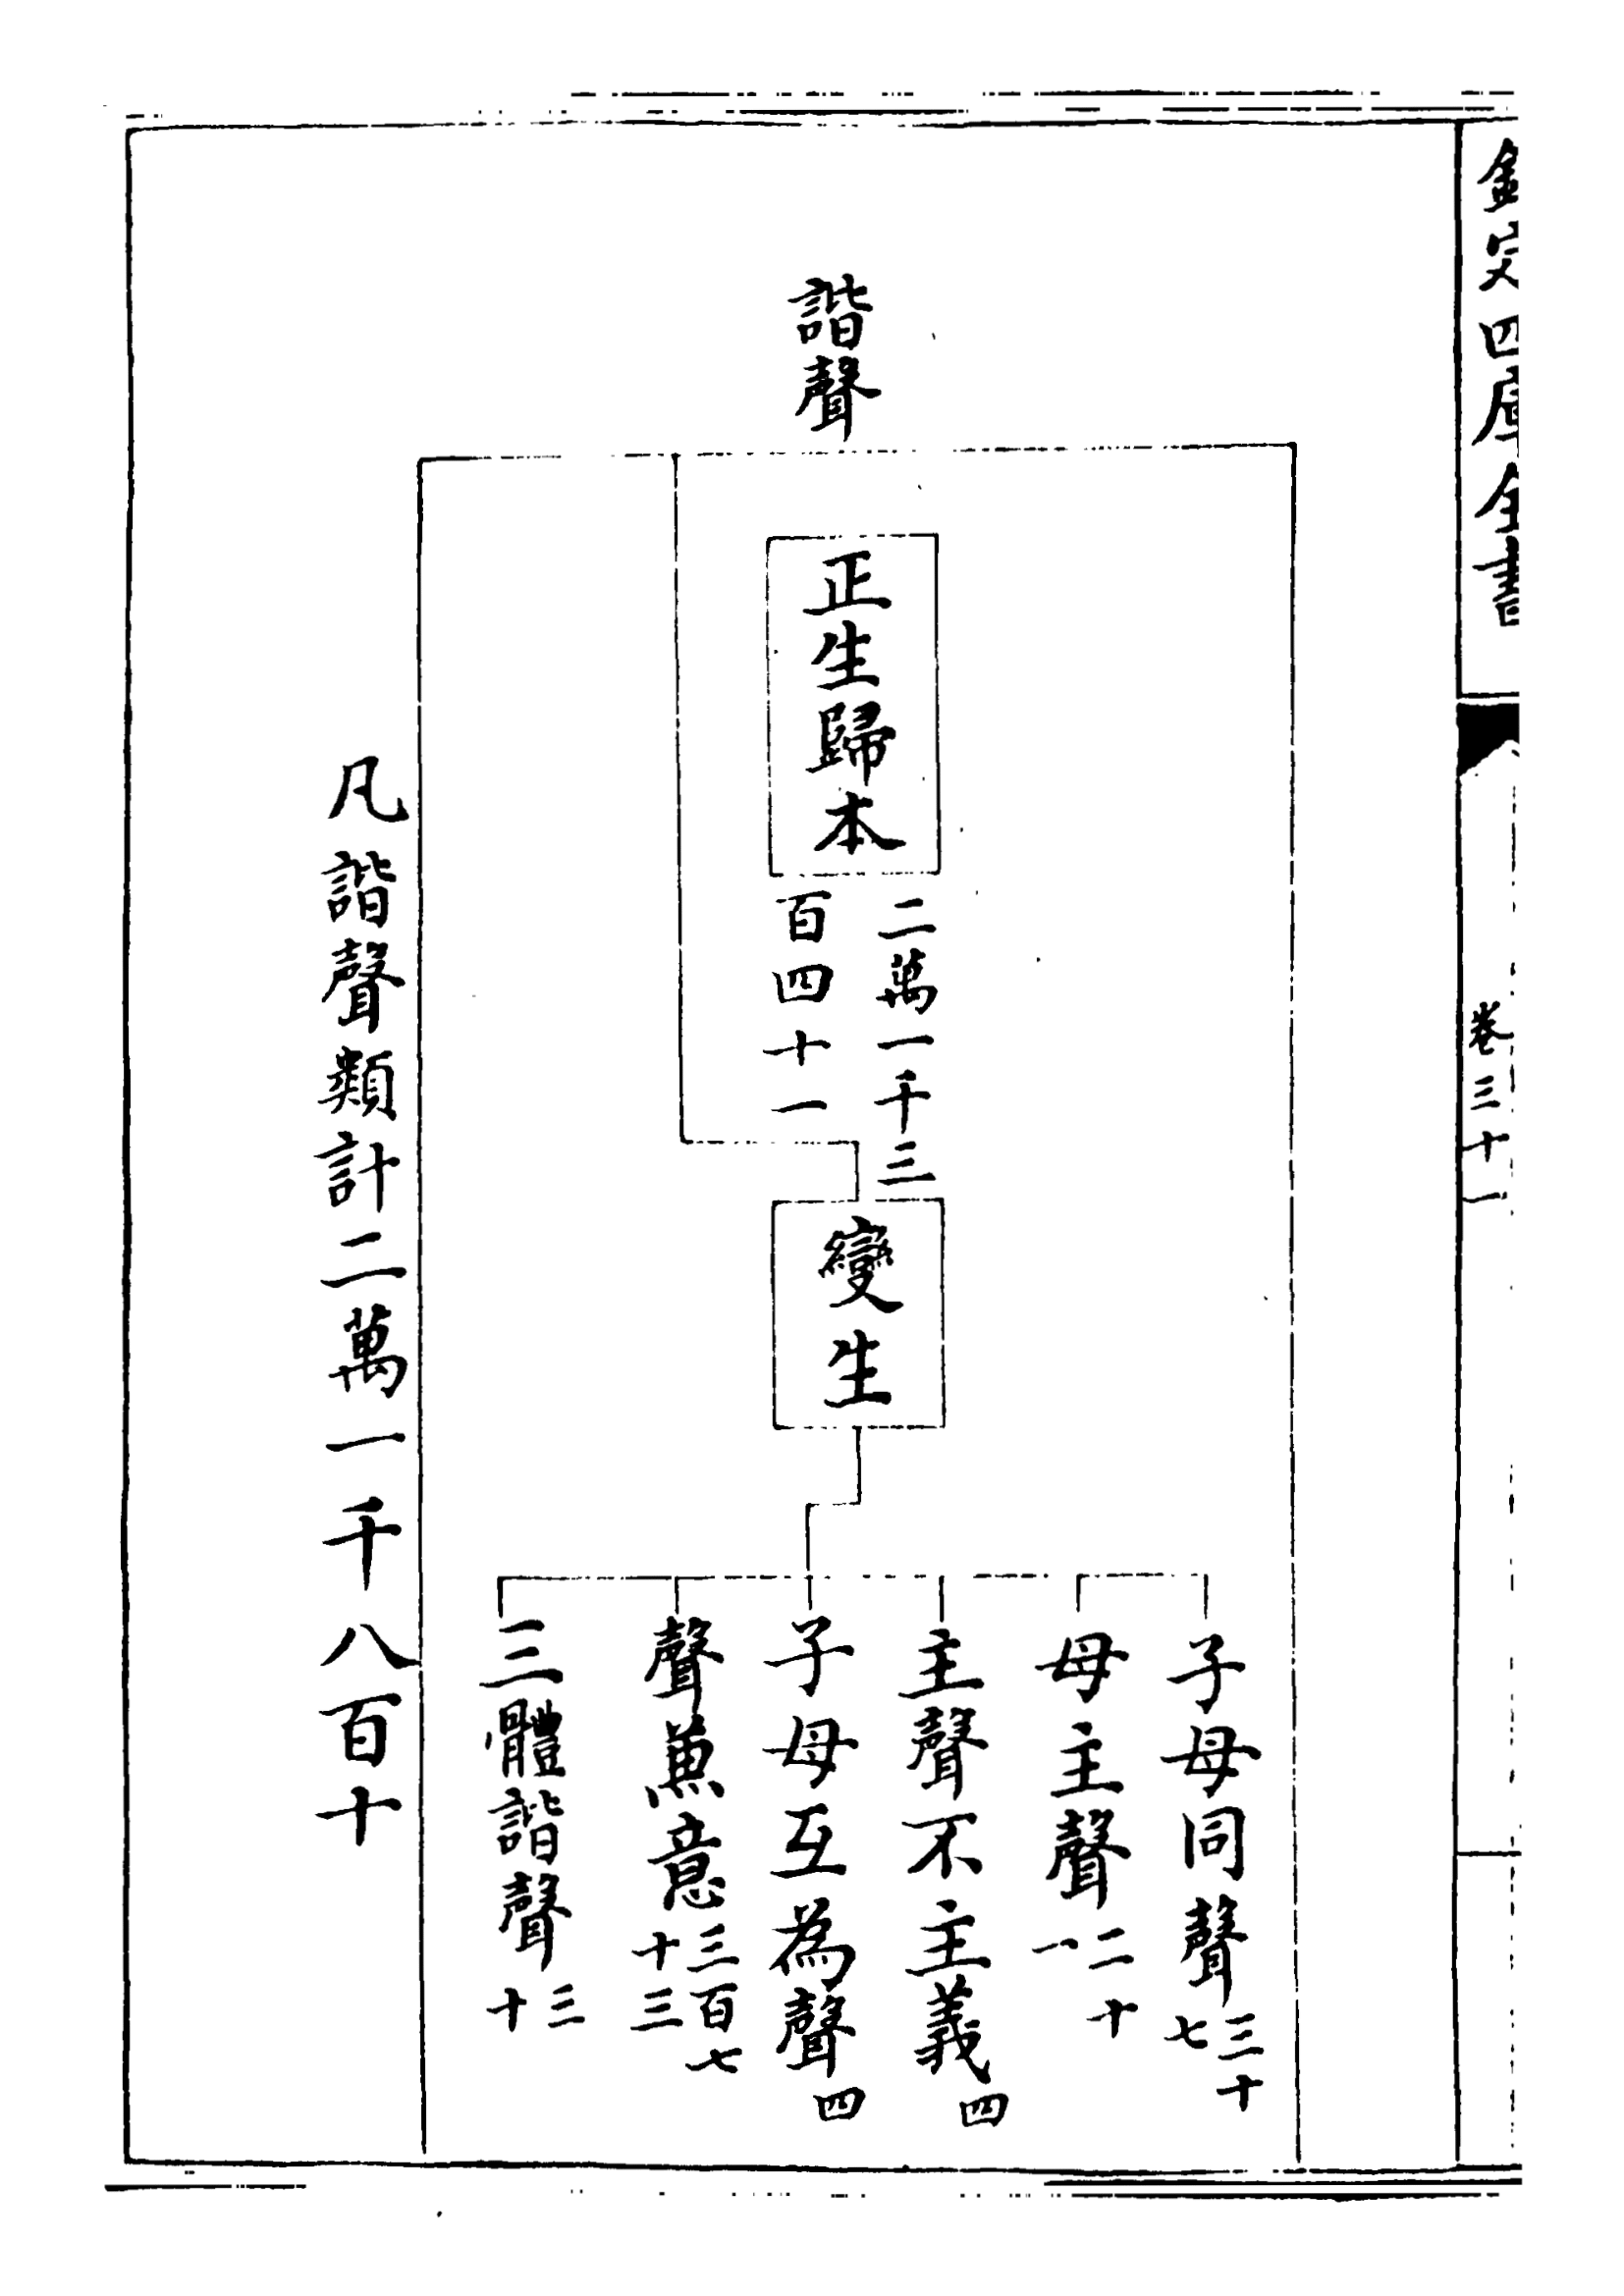 欽定四庫全書
卷三十一
諧聲
正生歸本
二萬一千三
百四十一
變生
子母同聲三十
七
母主聲二十
一
主聲不主義四
子母互為聲四
聲兼意三百七
十三
三體諧聲三
十
凡諧聲類計二萬一千八百十